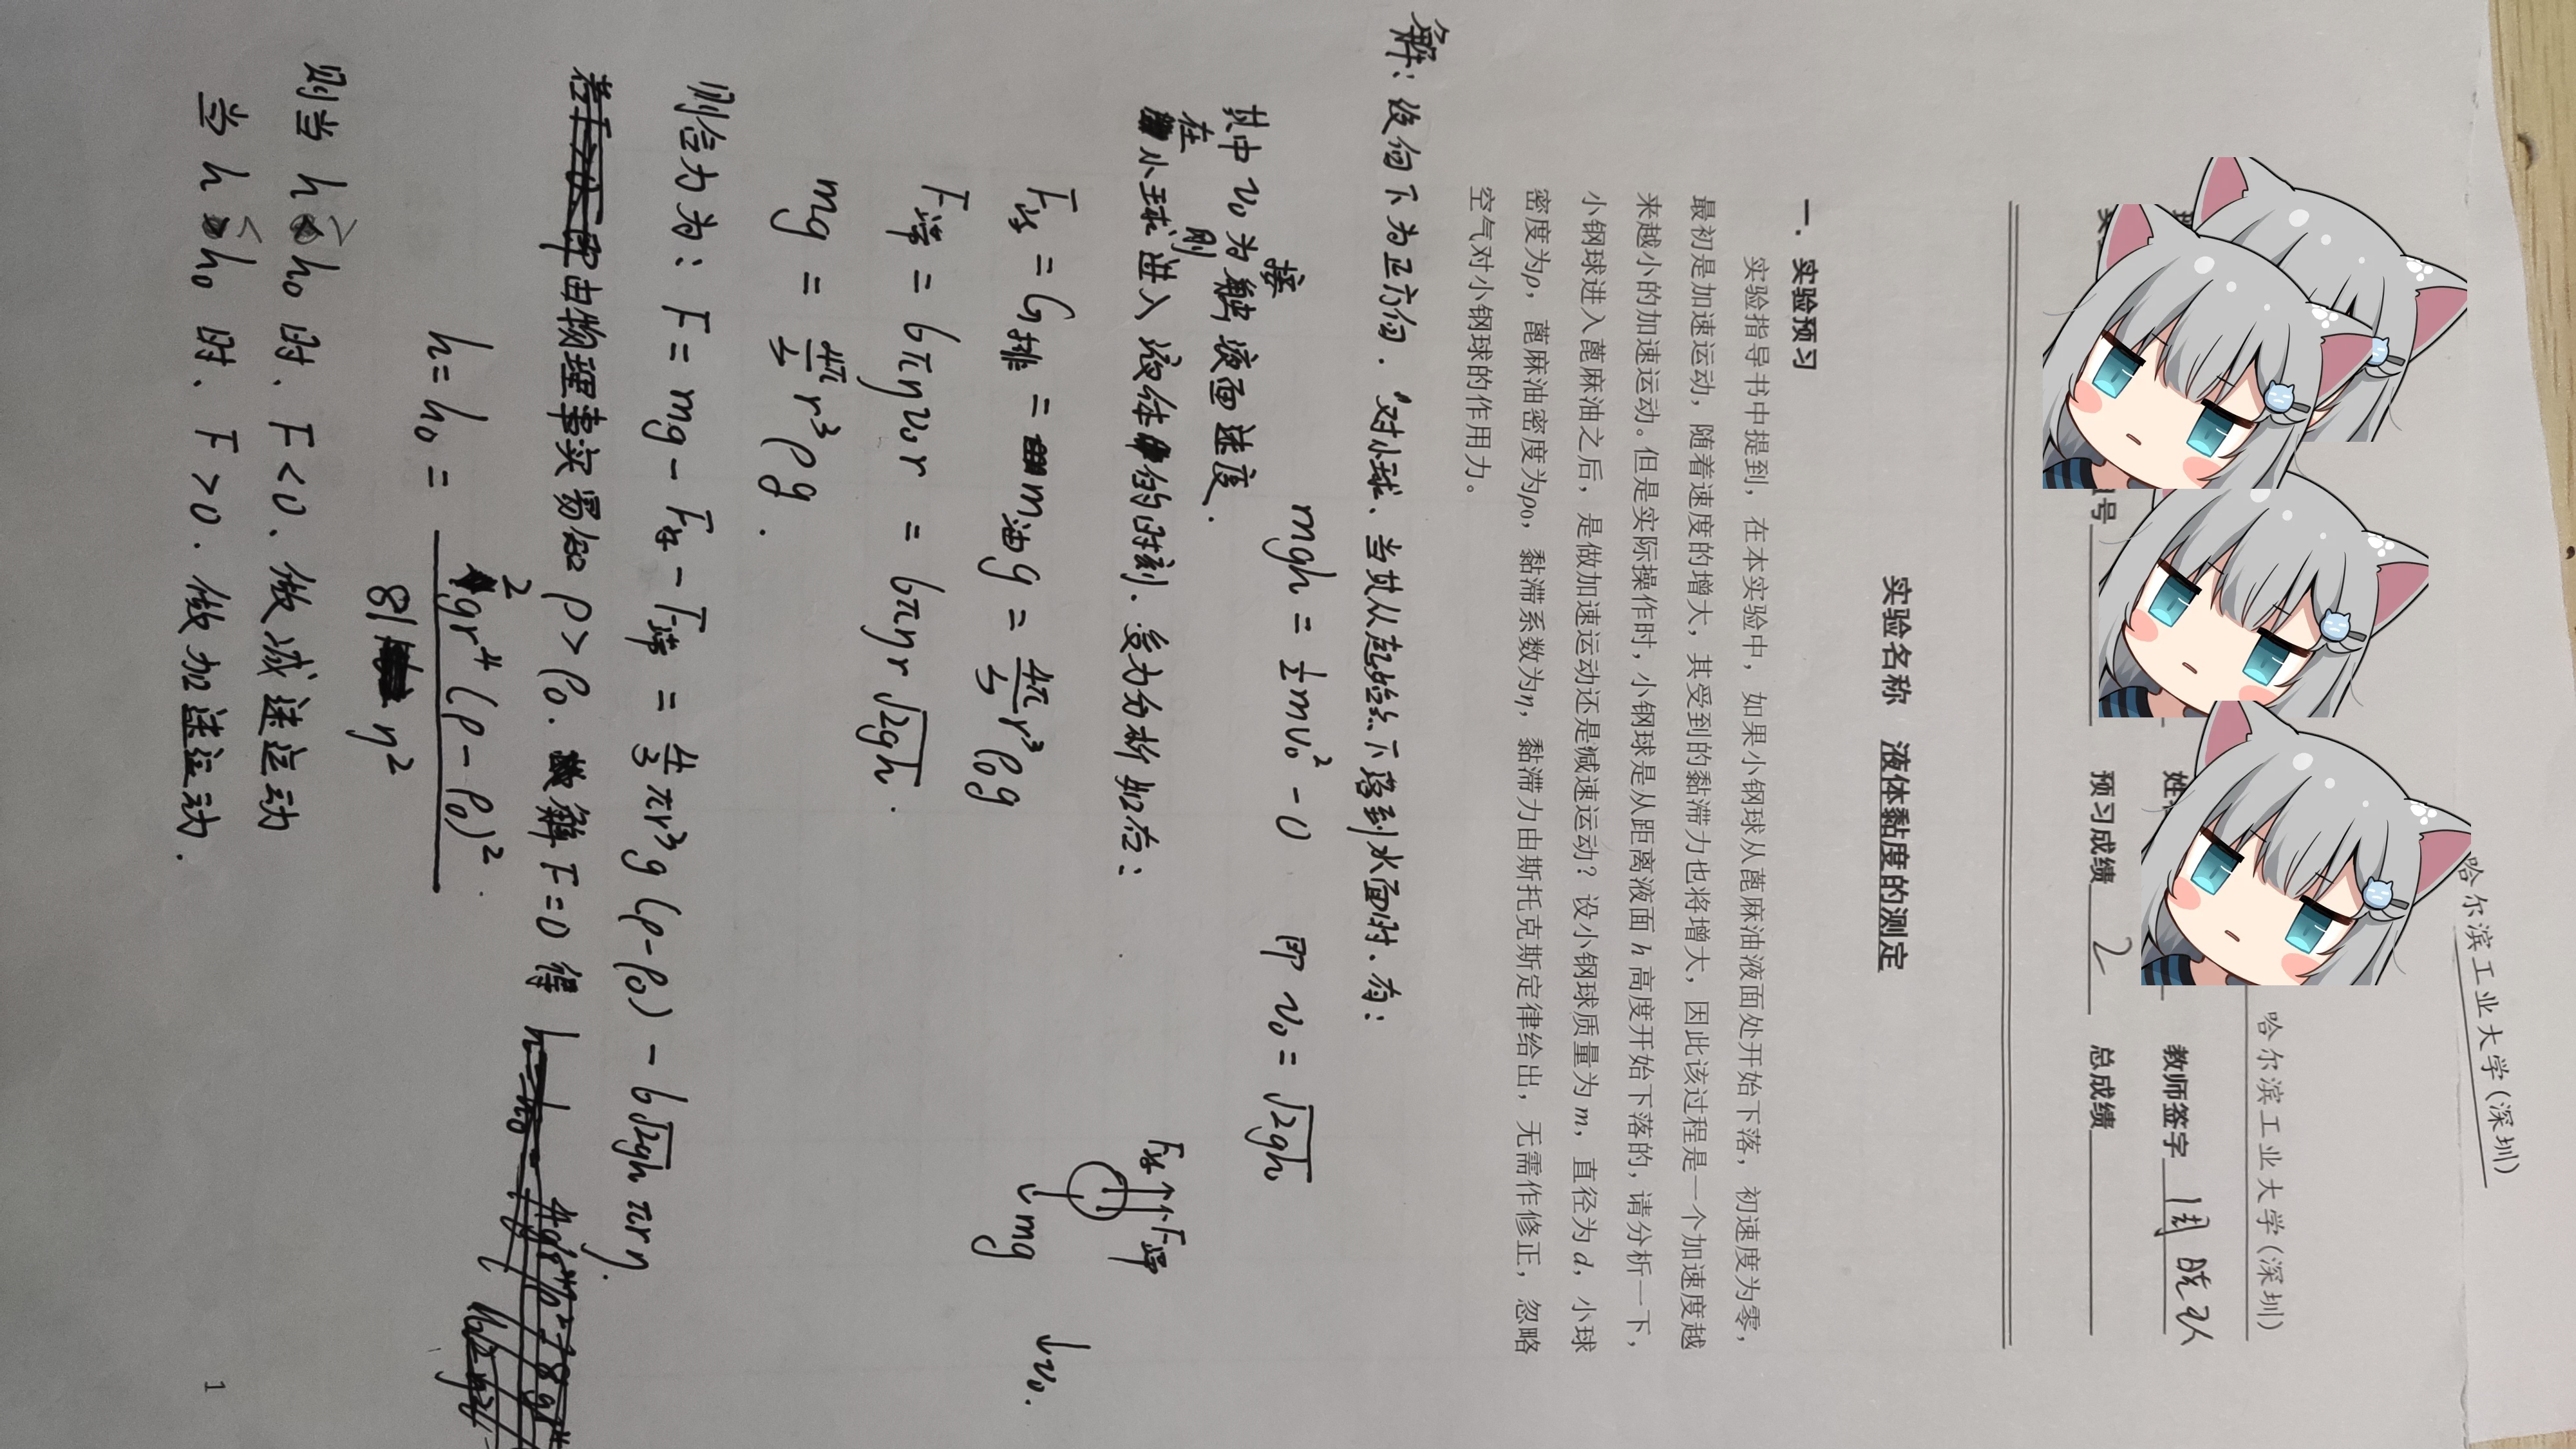 哈尔滨工业大学(深圳)
哈尔滨工业大学(深圳)
教师签字
号 预习成绩 2 总成绩
实验名称 液体黏度的测定
一．实验预习
实验指导书中提到，在本实验中，如果小钢球从蓖麻油液面处开始下落，初速度为零，
最初是加速运动，随着速度的增大，其受到的黏滞力也将增大，因此该过程是一个加速度越
来越小的加速运动。但是实际操作时，小钢球是从距离液面 h 高度开始下落的，请分析一下，
小钢球进入蓖麻油之后，是做加速运动还是减速运动？设小钢球质量为 m，直径为 d，小球
密度为ρ，蓖麻油密度为ρ₀，黏滞系数为η，黏滞力由斯托克斯定律给出，无需作修正，忽略
空气对小钢球的作用力。
解: 设向下为正方向. 对小球、当其从起始点下落到水面时.有:
mgh = ½mv₀² - 0 即 v₀ = √(2gh)
其中 v₀ 为接触液面速度.
在小球刚进入液体的时刻. 受力分析如右:
F浮 F滞
mg
v₀.
F浮 = G排 = m油g = 4π/3 r³ρ₀g
F滞 = 6πηv₀r = 6πηr√(2gh).
mg = 4π/3 r³ρg.
则合力为: F = mg - F浮 - F滞 = 4/3 πr³g(ρ-ρ₀) - 6√(2gh) πrη.
由物理事实易知 ρ > ρ₀. 解 F=0 得
h = h₀ = 2gr⁴(ρ-ρ₀)² / 81η²
则当 h > h₀ 时、F<0、做减速运动
当 h < h₀ 时、F>0. 做加速运动.
1